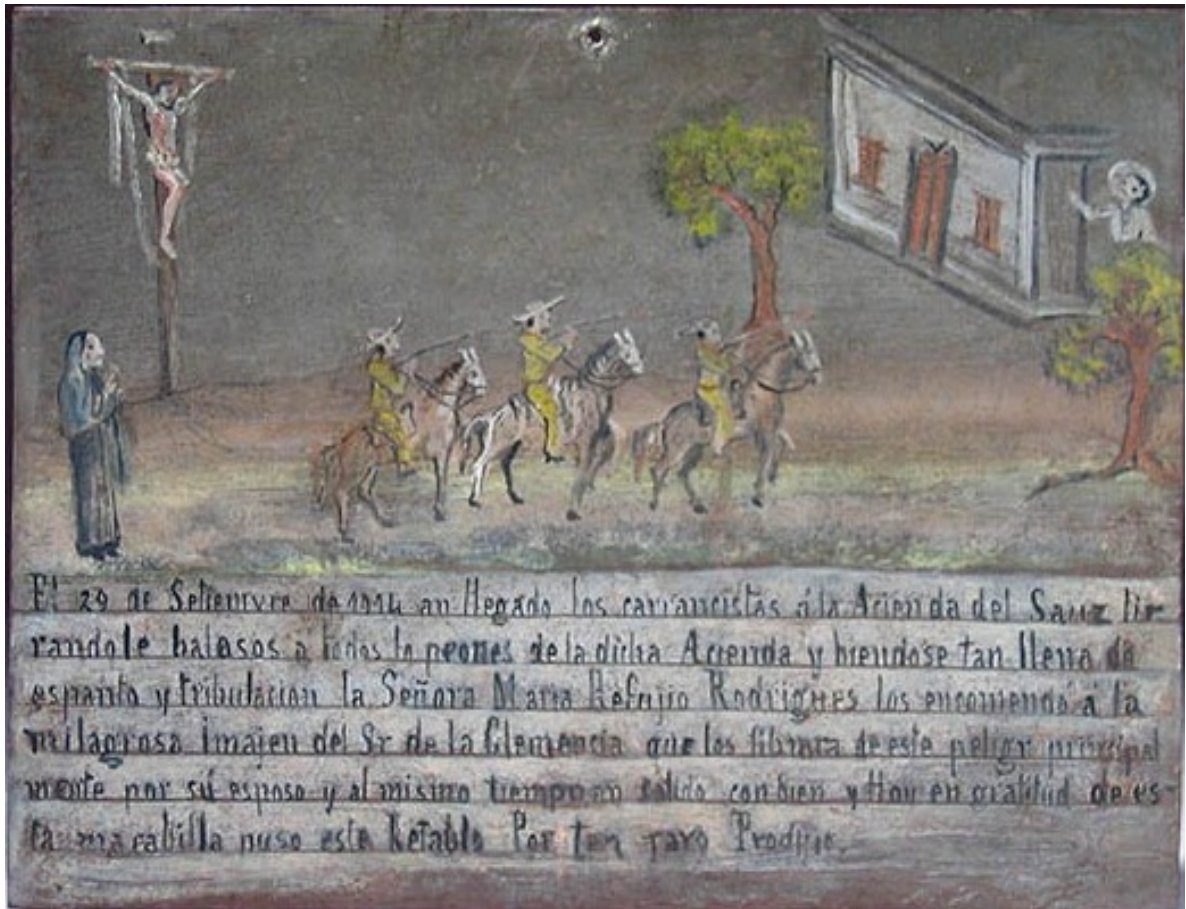 El 29 de Setiemvre de 1914 an llegado los carrancistas á la Acienda del Sauz tir
randole balasos a todos lo peones de la dicha Acienda y biendose tan llena de
espanto y tribulacion la Señora Maria Refujio Rodrigues los encomendó á la
milagrosa imajen del Sr de la Clemencia que los librara de este peligr principal
mente por sú esposo y al mismo tiempo an salido con bien y Hoy en gratitud de es-
ta marabilla puso este Retablo Por tan raro Prodijio.